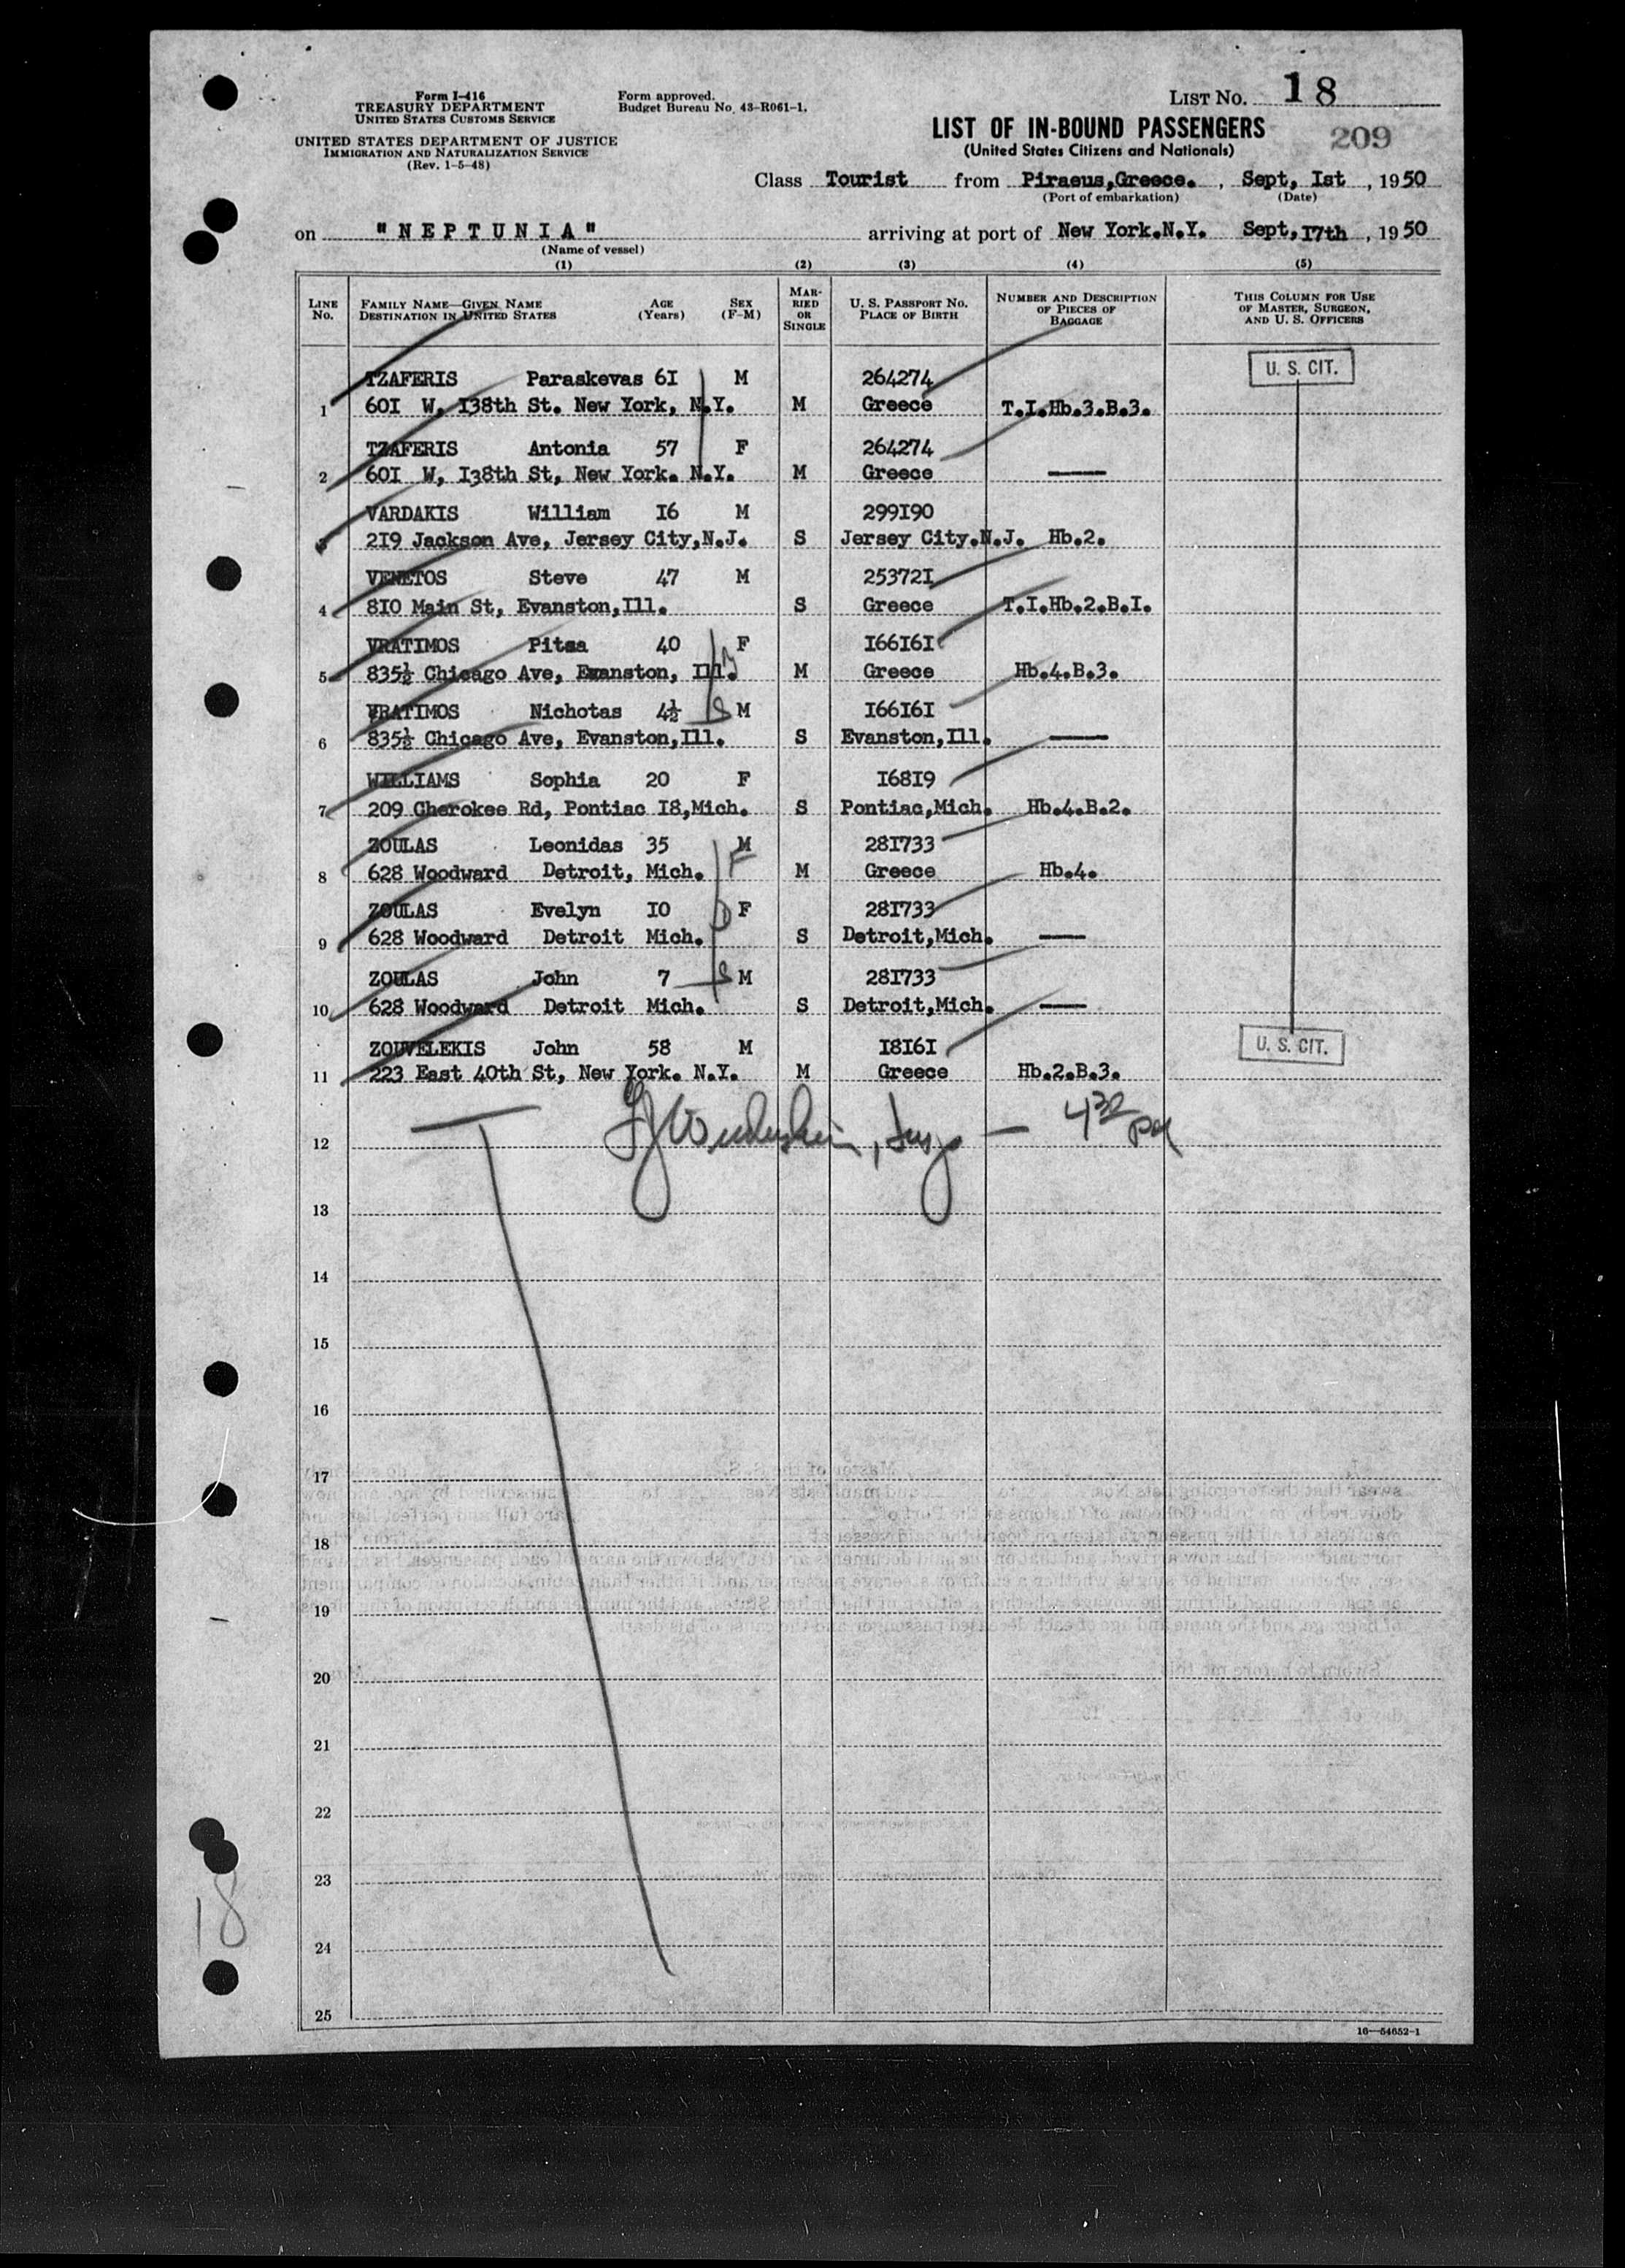 Form I-416
TREASURY DEPARTMENT
UNITED STATES CUSTOMS SERVICE
UNITED STATES DEPARTMENT OF JUSTICE
IMMIGRATION AND NATURALIZATION SERVICE
(Rev. 1-5-48)
Form approved.
Budget Bureau No. 43-R061-1.
LIST NO. 18
LIST OF IN-BOUND PASSENGERS
209
(United States Citizens and Nationals)
Class Tourist from Piraeus,Greece. , Sept, Ist , 1950
(Port of embarkation) (Date)
on "NEPTUNIA" arriving at port of New York.N.Y. Sept,I7th , 1950
(Name of vessel)
(1) (2) (3) (4) (5)
LINE No. FAMILY NAME—GIVEN NAME DESTINATION IN UNITED STATES AGE (Years) SEX (F-M) MARRIED OR SINGLE U. S. PASSPORT NO. PLACE OF BIRTH NUMBER AND DESCRIPTION OF PIECES OF BAGGAGE THIS COLUMN FOR USE OF MASTER, SURGEON, AND U. S. OFFICERS
TZAFERIS Paraskevas 6I M 264274 U. S. CIT.
1 60I W, I38th St. New York, N.Y. M Greece T.I.Hb.3.B.3.
TZAFERIS Antonia 57 F 264274
2 60I W, I38th St, New York. N.Y. M Greece ——
VARDAKIS William I6 M 299I90
3 2I9 Jackson Ave, Jersey City,N.J. S Jersey City.N.J. Hb.2.
VENETOS Steve 47 M 25372I
4 8I0 Main St, Evanston,Ill. S Greece T.I.Hb.2.B.I.
VRATIMOS Pitsa 40 F I66I6I
5 835½ Chicago Ave, Exanston, Ill. M Greece Hb.4.B.3.
VRATIMOS Nichotas 4½ S M I66I6I
6 835½ Chicago Ave, Evanston,Ill. S Evanston,Ill. ——
WILLIAMS Sophia 20 F I68I9
7 209 Cherokee Rd, Pontiac I8,Mich. S Pontiac,Mich. Hb.4.B.2.
ZOULAS Leonidas 35 M F 28I733
8 628 Woodward Detroit, Mich. M Greece Hb.4.
ZOULAS Evelyn I0 D F 28I733
9 628 Woodward Detroit Mich. S Detroit,Mich. ——
ZOULAS John 7 S M 28I733
10 628 Woodward Detroit Mich. S Detroit,Mich. ——
ZOUVELEKIS John 58 M I8I6I U. S. CIT.
11 223 East 40th St, New York. N.Y. M Greece Hb.2.B.3.
12
13
14
15
16
17
18
19
20
21
22
23
24
25
18
16—54652-1